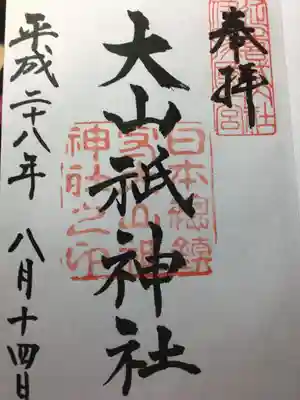 奉拝
大山祇神社
平成二十八年 八月十四日
日本總鎮
神社之印